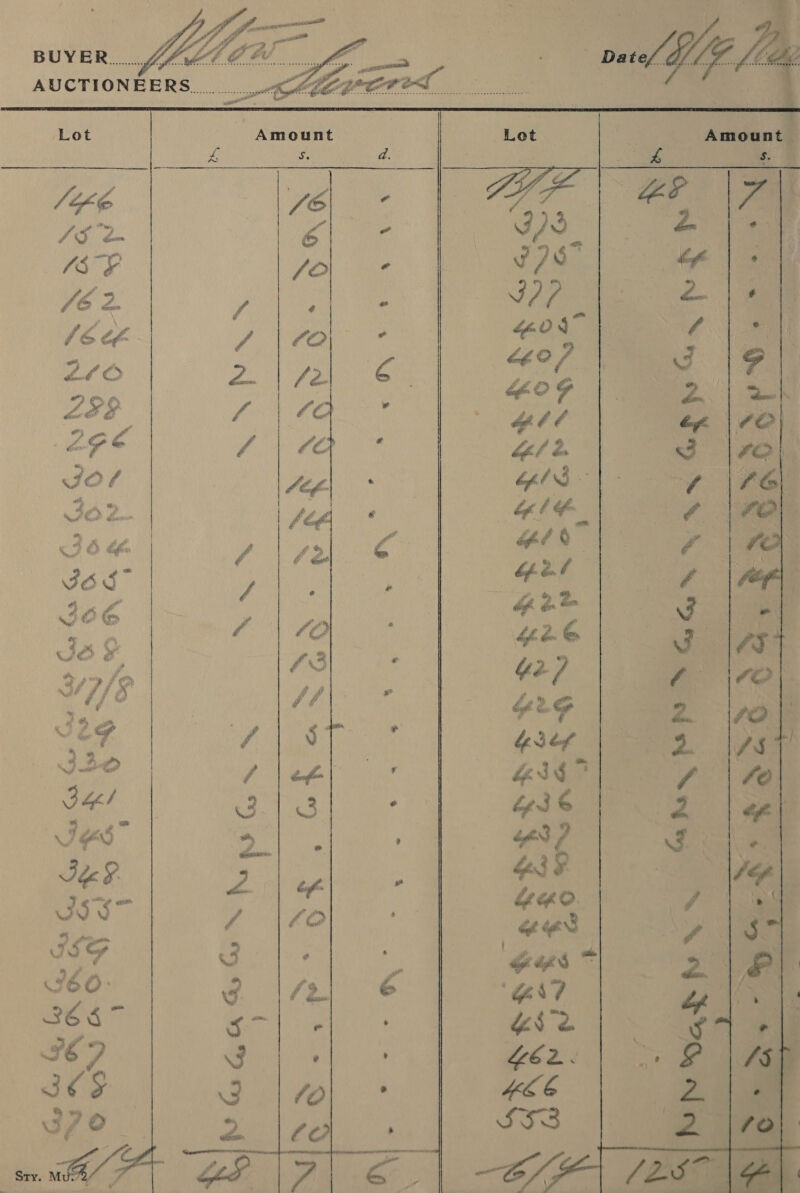 BUYER
Date
AUCTIONEERS
Lot Amount Lot Amount
£ s. d. £ s.
146 16 - B/F 48 7
152 6 - 373 2 -
158 10 - 375 4 -
162 1 - - 377 2 -
164 1 10 - 405 1 -
210 2 12 6 407 3 9
288 1 10 - 409 2 2
296 1 10 - 411 4 10
301 14 - 412 3 10
302 14 - 413 1 16
304 1 12 6 414 1 10
305 1 - - 415 1 10
306 1 10 - 421 1 14
308 13 - 422 3 -
317/8 11 - 426 3 15
329 1 5 - 427 1 10
330 1 4 - 429 2 10
341 3 3 - 434 2 15
345 2 - - 435 1 10
348 2 4 - 436 2 4
355 1 10 - 437 3 -
359 3 - - 438 14
360 3 12 6 440 1 -
365 5 - - 443 1 5
367 3 - - 445 2 8
368 3 10 - 447 4 -
370 2 10 - 452 5 -
462 8 15
466 2 -
553 2 10
Sty. Mu. C/F 48 7 6 C/F 125 4